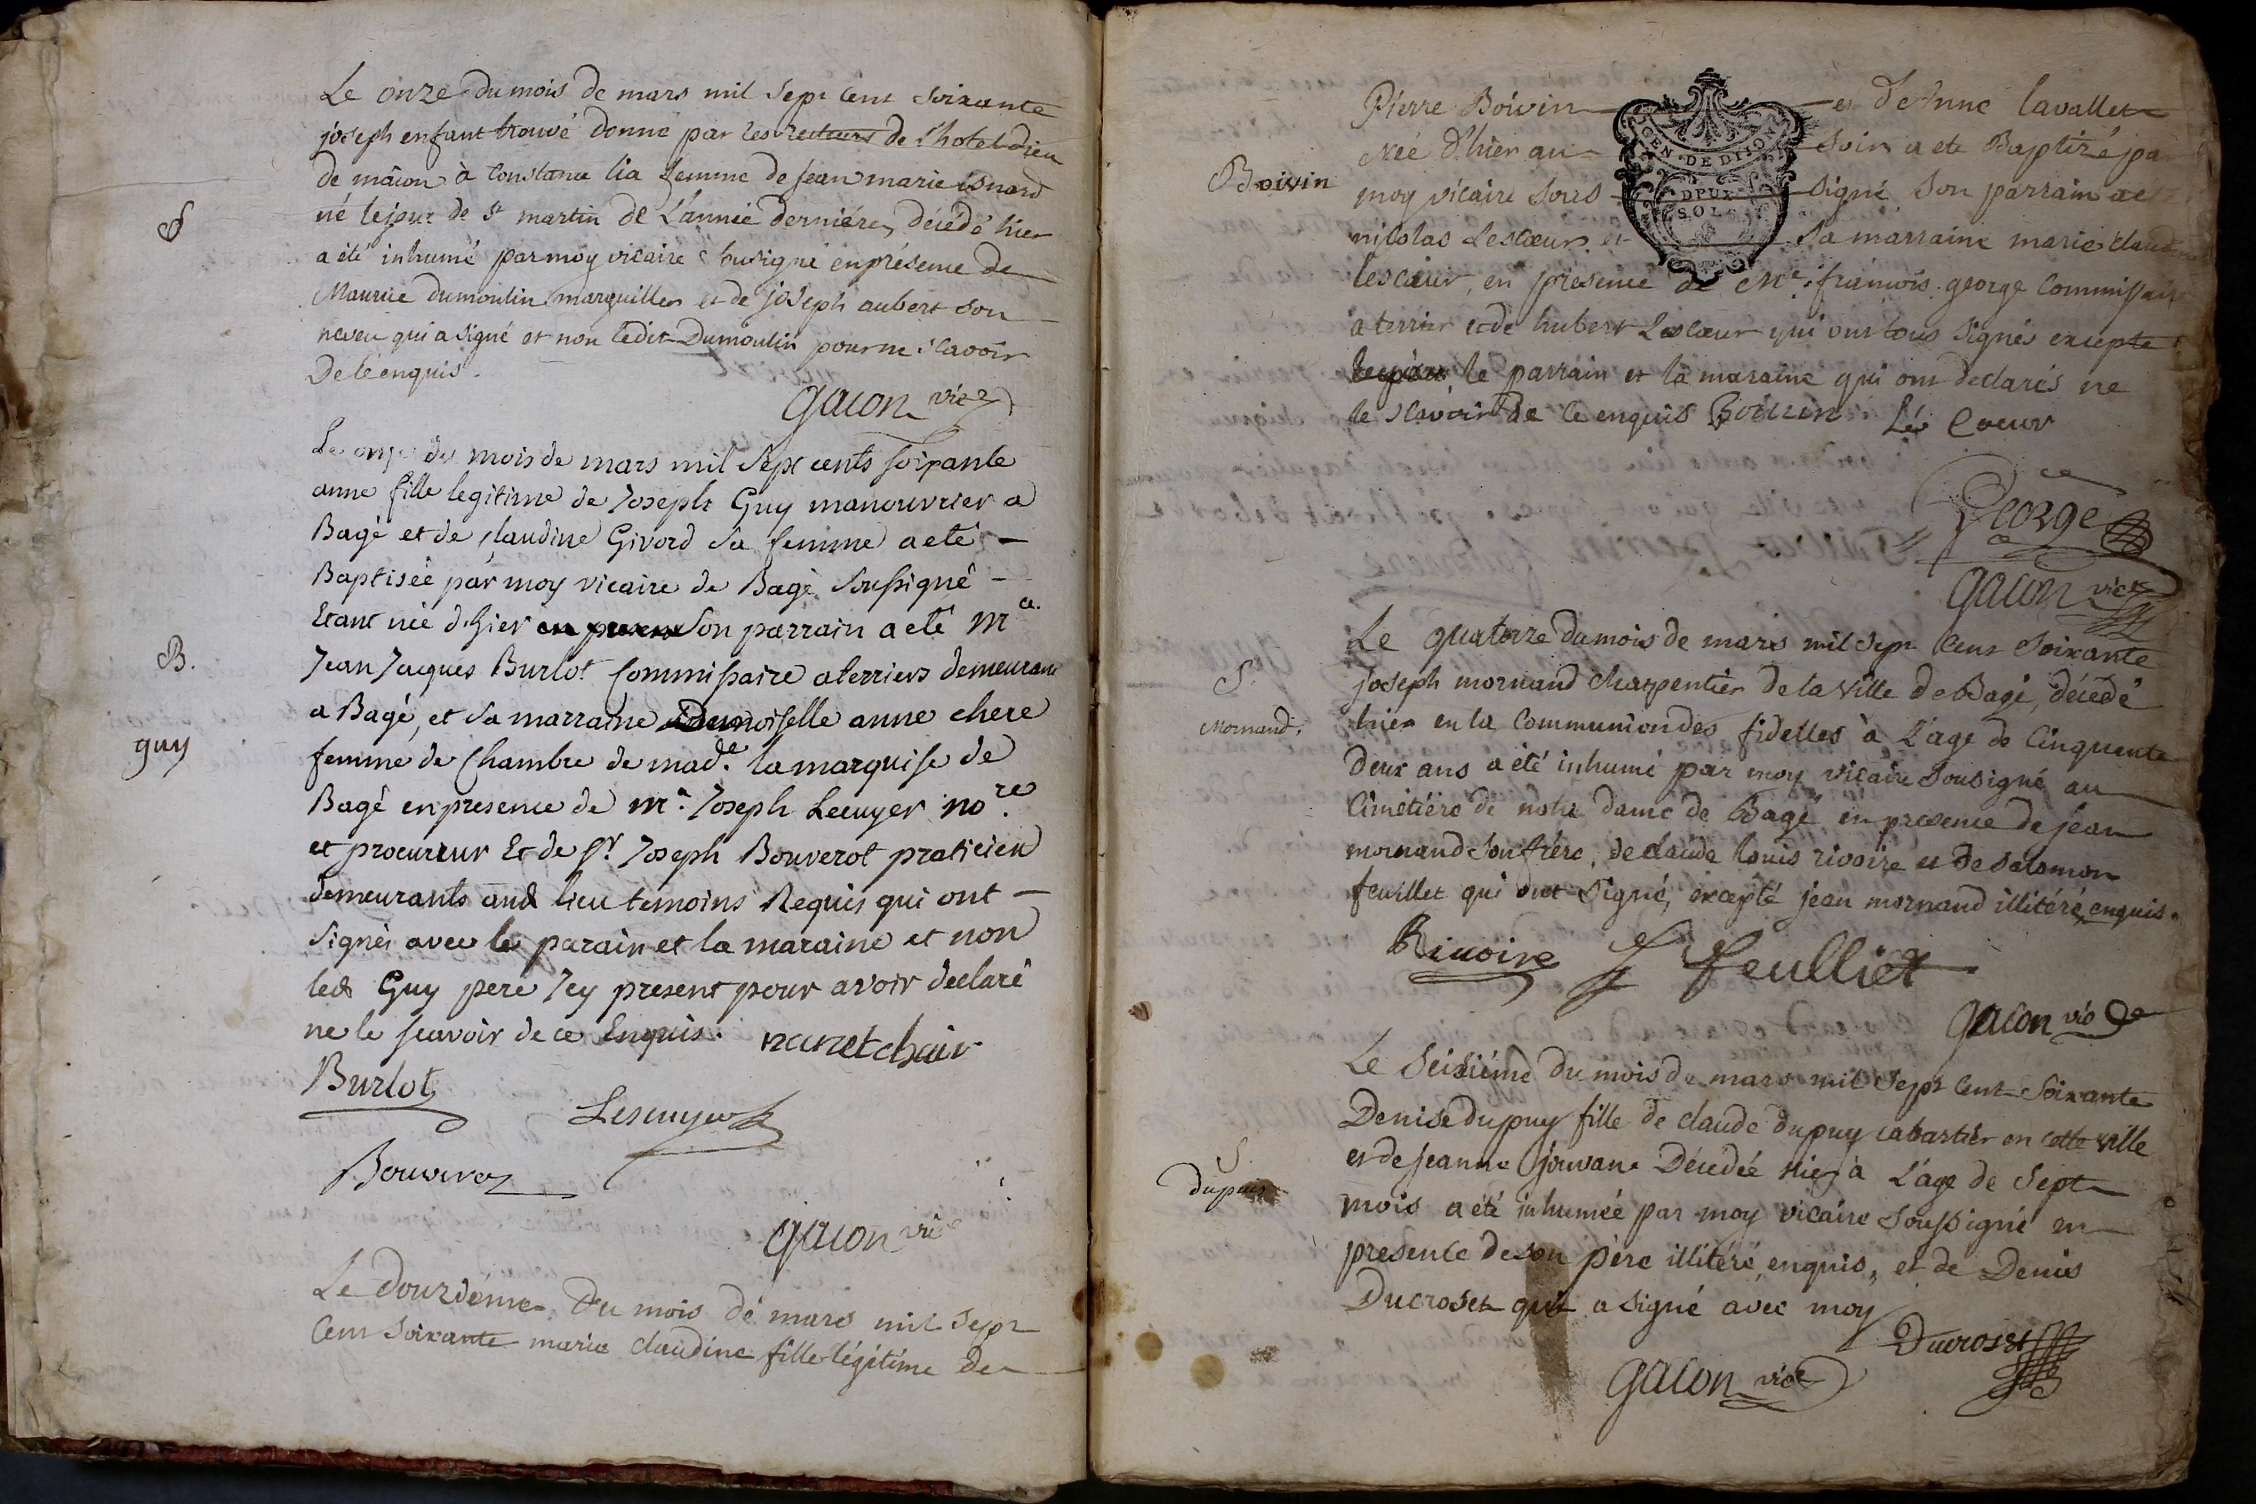 Le onze du mois de mars mil sept cent soixante
joseph enfant trouvé donné par les recteurs de l'hotel dieu
de mâcon à constance lia femme de jean marie isnard
né le jour de st martin de l'année dernière, décédé hier
S
a été inhumé par moy vicaire sousigné en présence de
Maurice dumoulin marguillier et de joseph aubert son
neveu qui a signé et non ledit Dumoulin pour ne scavoir
De ce enquis.
Gacon vic
Le onze du mois de mars mil sept cents soixante
anne fille legitime de Joseph Guy manouvrier a
Bagé et de Claudine Givord sa femme a eté
Baptiséé par moy vicaire de Bagé soussigné
Etant née d'hier son parrain a eté Me
B.
guy
Jean Jacques Burlot Commissaire a terriers demeurant
a Bagé, et sa marraine Demoiselle anne chere
femme de Chambre de made. la marquise de
Bagé en presence de me. Joseph Lecuyer nore.
et procureur Et de Sr. Joseph Bouverot praticien
demeurants aud lieu temoins Requis qui ont
signés avec le parain et la maraine et non
led Guy pere Icy present pour avoir declaré
ne le scavoir de ce Enquis. nanet chair
Burlot
Lescuyer
Bouverot
Gacon vic
Le douzième du mois de mars mil sept
cent soixante marie claudine fille légitime de
Pierre Boivin et d'Anne lavallet
GEN. DE DIJON
DPUX
SOLS
Née d'hier au soir a eté Baptizé par
Boivin
moy vicaire sous signé son parrain a eté
nicolas Lescoeur et sa marraine marie claudine
lescoeur, en présence de Me. francois george commissaire
a terrier et de hubert Lescoeur qui ont tous signés excepté
le parrain et la maraine qui ont declarés ne
le scavoir de ce enquis Boivin Lé Coeur
George
Gacon vic
Le quatorze du mois de mars mil sept cent soixante
joseph mornand charpentier de la ville de Bagé, décédé
S.
Mornand.
hier en la communion des fidelles à l'age de cinquente
deux ans a été inhumé par moy vicaire sousigné au
cimetière de notre dame de Bagé en presence de jean
mornand son frère, de claude louis rivoire et de salomon
feuillet qui ont signé, excepté jean mornand illitéré, enquis.
Rivoire S Feulliet
Gacon vic
Le seizième du mois de mars mil sept cent soixante
Denise dupuy fille de claude dupuy cabartier en cette ville
S.
dupuis
et de jeanne jouvan Décédée hier à l'age de sept
mois a été inhuméé par moy vicaire soussigné en
presente de son père illitéré enquis, et de Denis
Ducroset qui a signé avec moy
Ducroset
Gacon vic